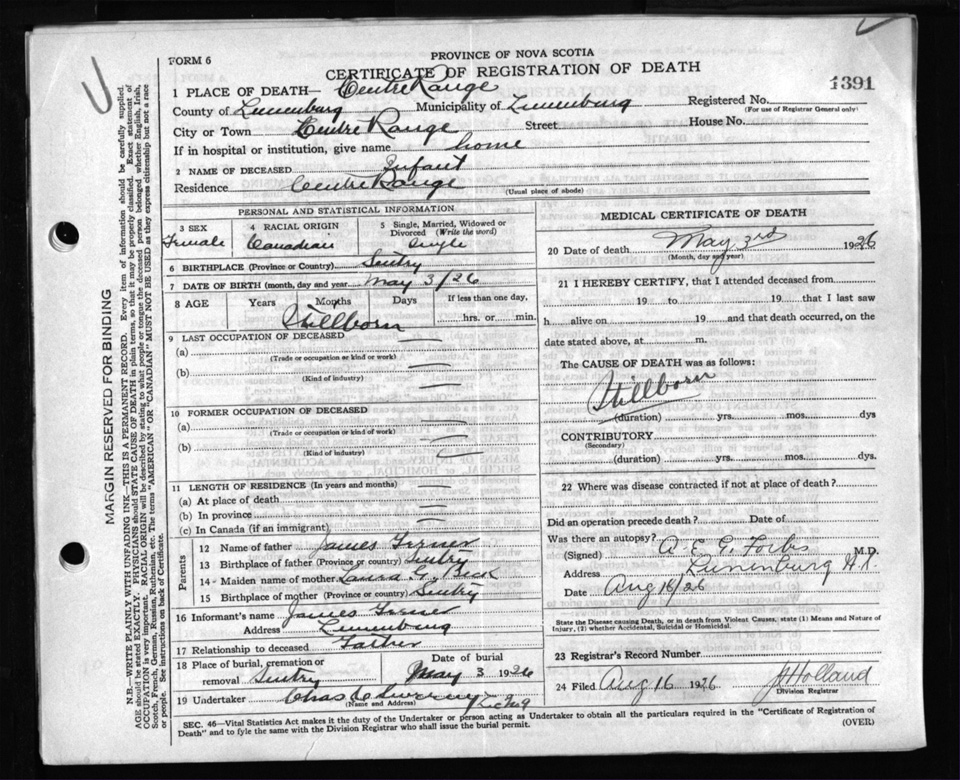 FORM 6
PROVINCE OF NOVA SCOTIA
CERTIFICATE OF REGISTRATION OF DEATH
1391
1 PLACE OF DEATH— Centre Range
County of Lunenburg Municipality of Lunenburg Registered No.
(For use of Registrar General only)
City or Town Centre Range Street House No.
If in hospital or institution, give name home
2 NAME OF DECEASED Infant
Residence Centre Range
(Usual place of abode)
PERSONAL AND STATISTICAL INFORMATION
3 SEX Female
4 RACIAL ORIGIN Canadian
5 Single, Married, Widowed or Divorced (Write the word) Single
6 BIRTHPLACE (Province or Country)
7 DATE OF BIRTH (month, day and year) May 3/26
8 AGE Years Months Days If less than one day, hrs. or min.
Stillborn
9 LAST OCCUPATION OF DECEASED
(a)
(Trade or occupation or kind of work)
(b)
(Kind of industry)
10 FORMER OCCUPATION OF DECEASED
(a)
(Trade or occupation or kind of work)
(b)
(Kind of industry)
11 LENGTH OF RESIDENCE (In years and months)
(a) At place of death
(b) In province
(c) In Canada (if an immigrant)
Parents
12 Name of father James
13 Birthplace of father (Province or country)
14 Maiden name of mother Laura
15 Birthplace of mother (Province or country)
16 Informant's name James
Address Lunenburg
17 Relationship to deceased Father
18 Place of burial, cremation or removal
Date of burial May 3 1926
19 Undertaker Chas
(Name and Address)
MEDICAL CERTIFICATE OF DEATH
20 Date of death May 3rd 1926
(Month, day and year)
21 I HEREBY CERTIFY, that I attended deceased from
19 to 19 that I last saw
h alive on 19 and that death occurred, on
date stated above, at m.
The CAUSE OF DEATH was as follows:
Stillborn
(duration) yrs. mos. dys
CONTRIBUTORY
(Secondary)
(duration) yrs. mos. dys.
22 Where was disease contracted if not at place of death?
Did an operation precede death? Date of
Was there an autopsy?
(Signed) A. E. G. Forbes M.D.
Address Lunenburg N.S.
Date Aug 16/26
State the Disease causing Death, or in death from Violent Causes, state (1) Means and Nature of
Injury, (2) whether Accidental, Suicidal or Homicidal.
23 Registrar's Record Number
24 Filed Aug 16 1926 Holland
Division Registrar
SEC. 46—Vital Statistics Act makes it the duty of the Undertaker or person acting as Undertaker to obtain all the particulars required in the "Certificate of Registration of
Death" and to fyle the same with the Division Registrar who shall issue the burial permit.
(OVER)
MARGIN RESERVED FOR BINDING
N.B.—WRITE PLAINLY WITH UNFADING INK—THIS IS A PERMANENT RECORD. Every item of information should be carefully supplied.
AGE should be stated EXACTLY. PHYSICIANS should STATE CAUSE OF DEATH in plain terms, so that it may be properly classified. Exact statement of
OCCUPATION is very important. RACIAL ORIGIN will be described by stating to what people or tongue the deceased person belonged, whether English, Irish,
Scotch, French, German, Russian, Ruthenian, etc. The terms "AMERICAN" OR "CANADIAN" MUST NOT BE USED as they express citizenship but not a race
or people. See instructions on back of Certificate.